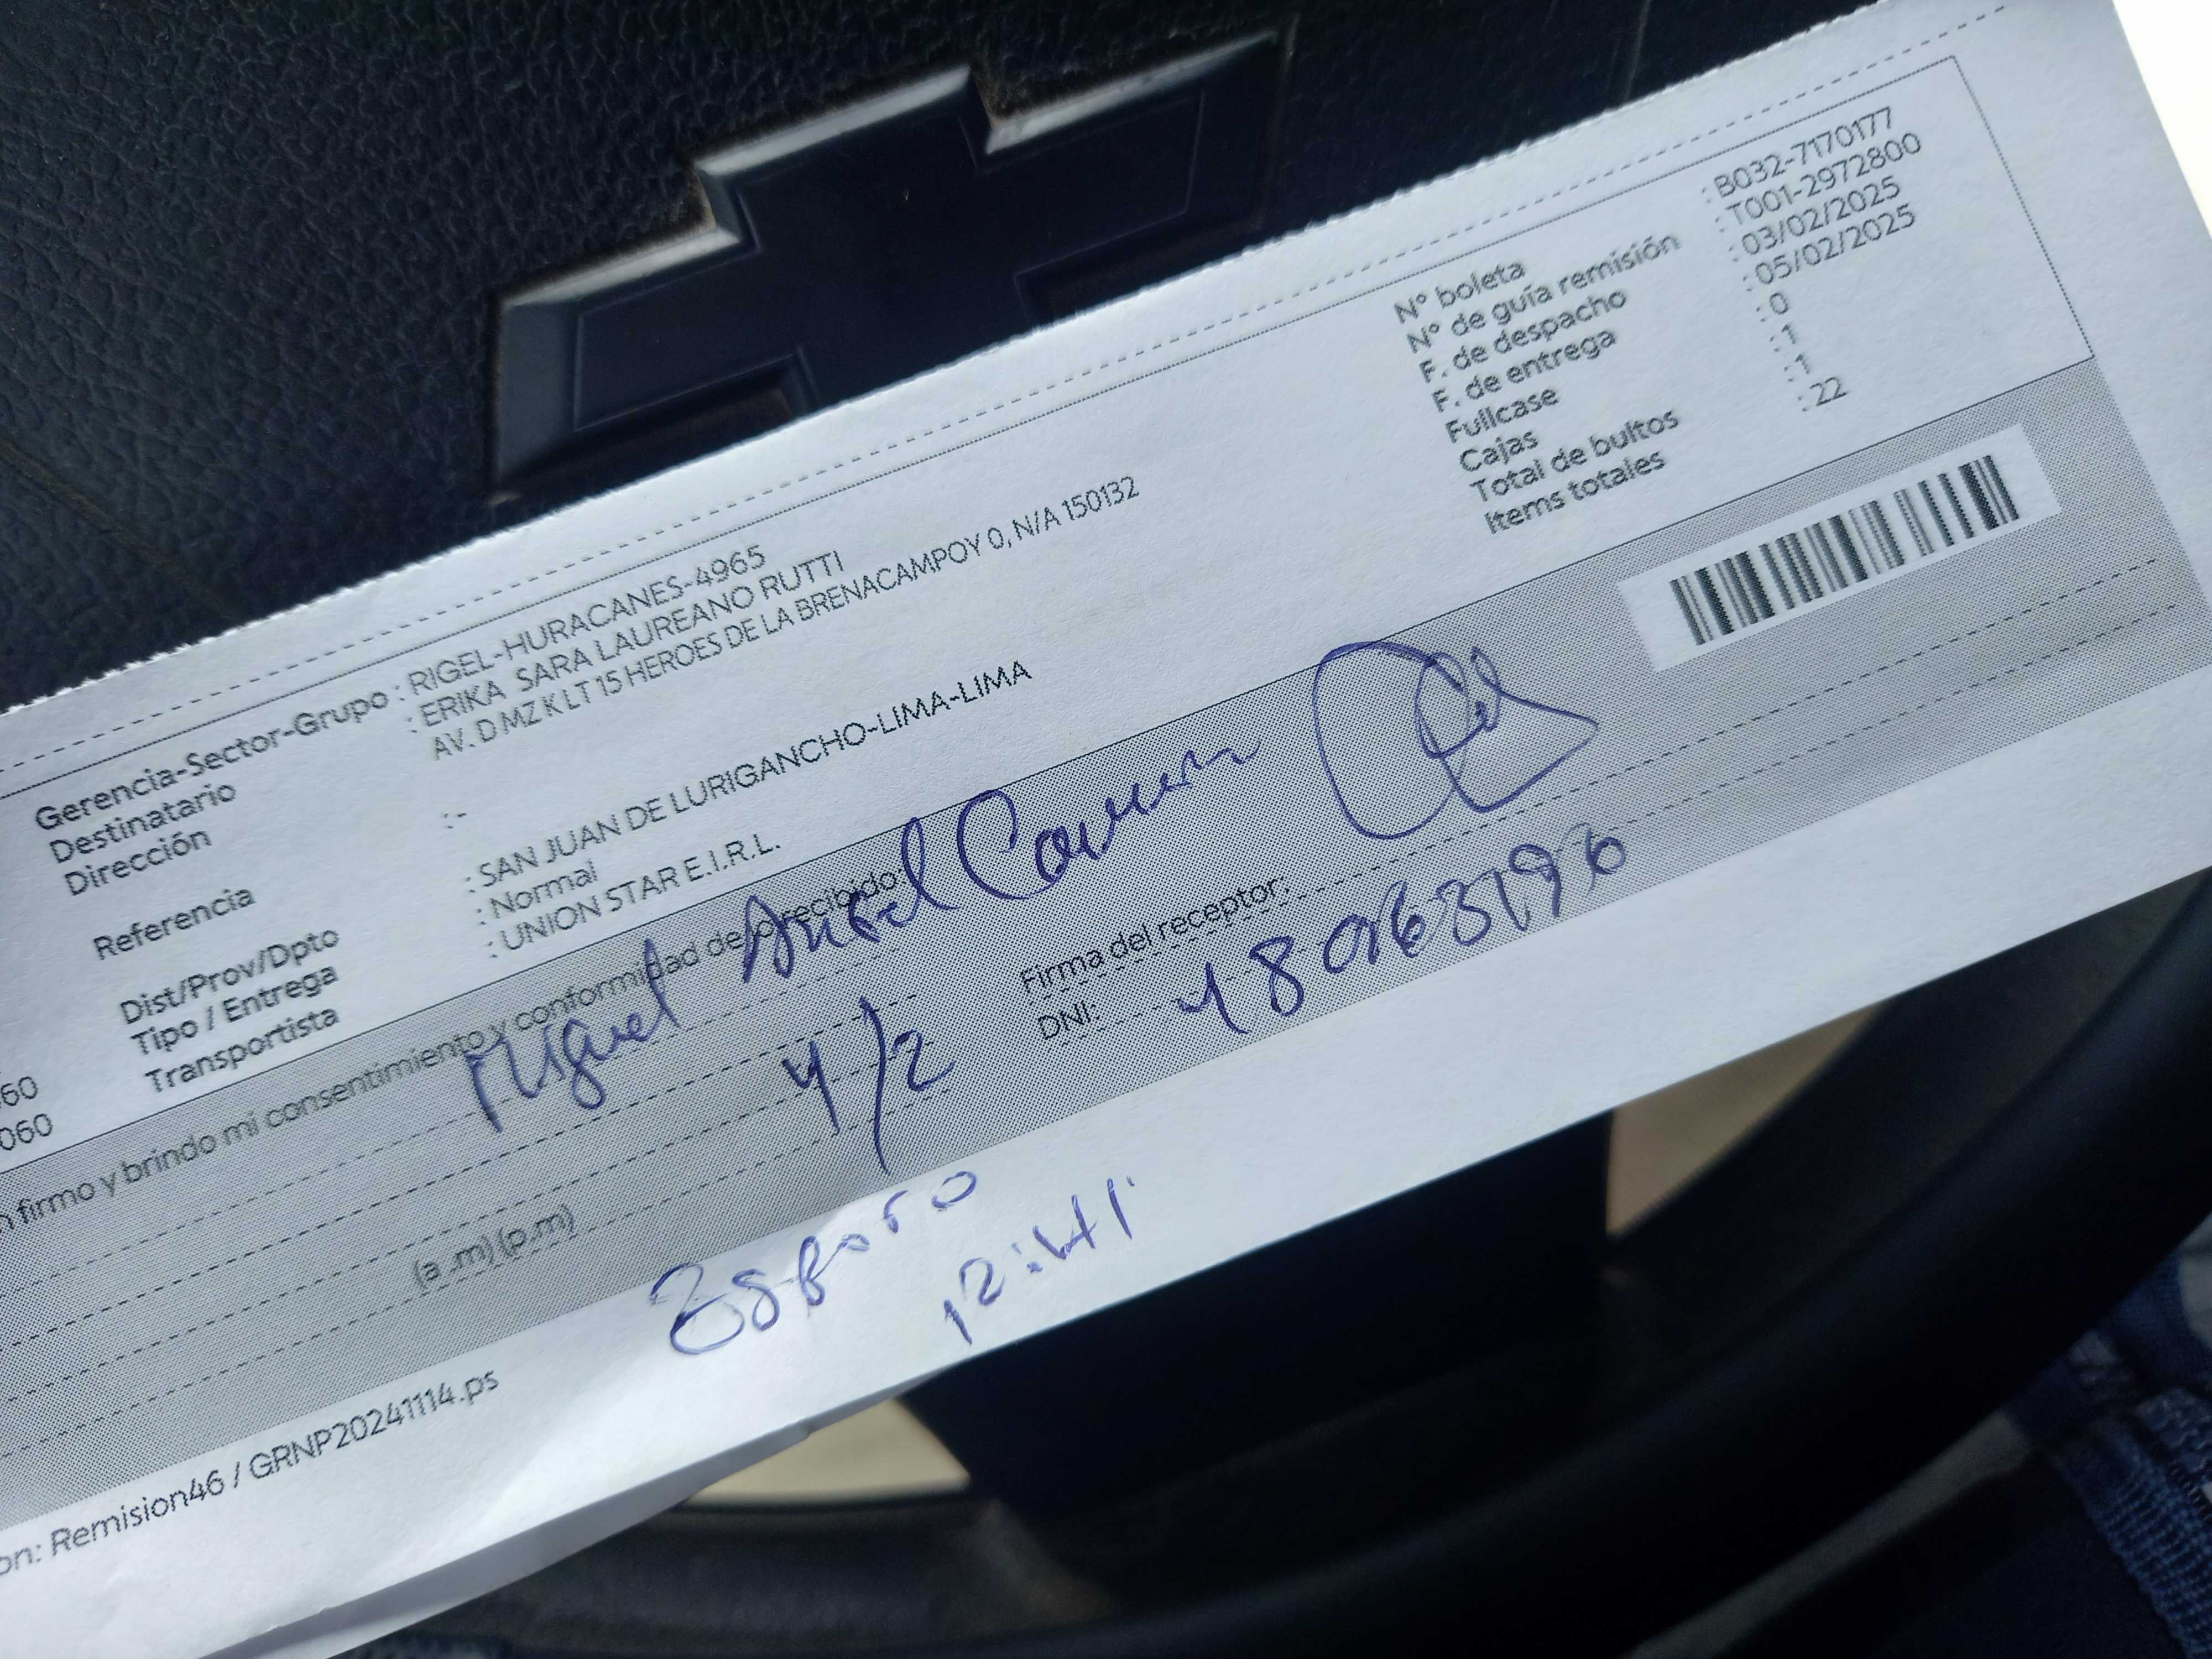 N° boleta : B032-7170177
N° de guía remisión : T001-2972800
F. de despacho : 03/02/2025
F. de entrega : 05/02/2025
Fullcase : 0
Cajas : 1
Total de bultos : 1
Items totales : 22
Gerencia-Sector-Grupo : RIGEL-HURACANES-4965
Destinatario : ERIKA SARA LAUREANO RUTTI
Dirección : AV. D MZ K LT 15 HEROES DE LA BRENACAMPOY 0, N/A 150132
Referencia : -
Dist/Prov/Dpto : SAN JUAN DE LURIGANCHO-LIMA-LIMA
Tipo / Entrega : Normal
Transportista : UNION STAR E.I.R.L.
60
060
firmo y brindo mi consentimiento y conformidad de lo recibido:
Miguel Angel
4/2
Firma del receptor:
DNI:
(a .m) (p.m)
Esposo
12:41
on: Remision46 / GRNP20241114.ps